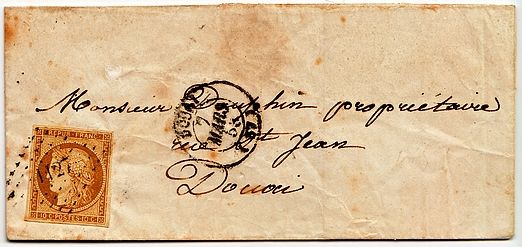 Monsieur Dauphin propriétaire
rue St Jean
Douai
DOUAI
7
MARS
53
REPUB. FRANC.
10 C. POSTES 10 C.